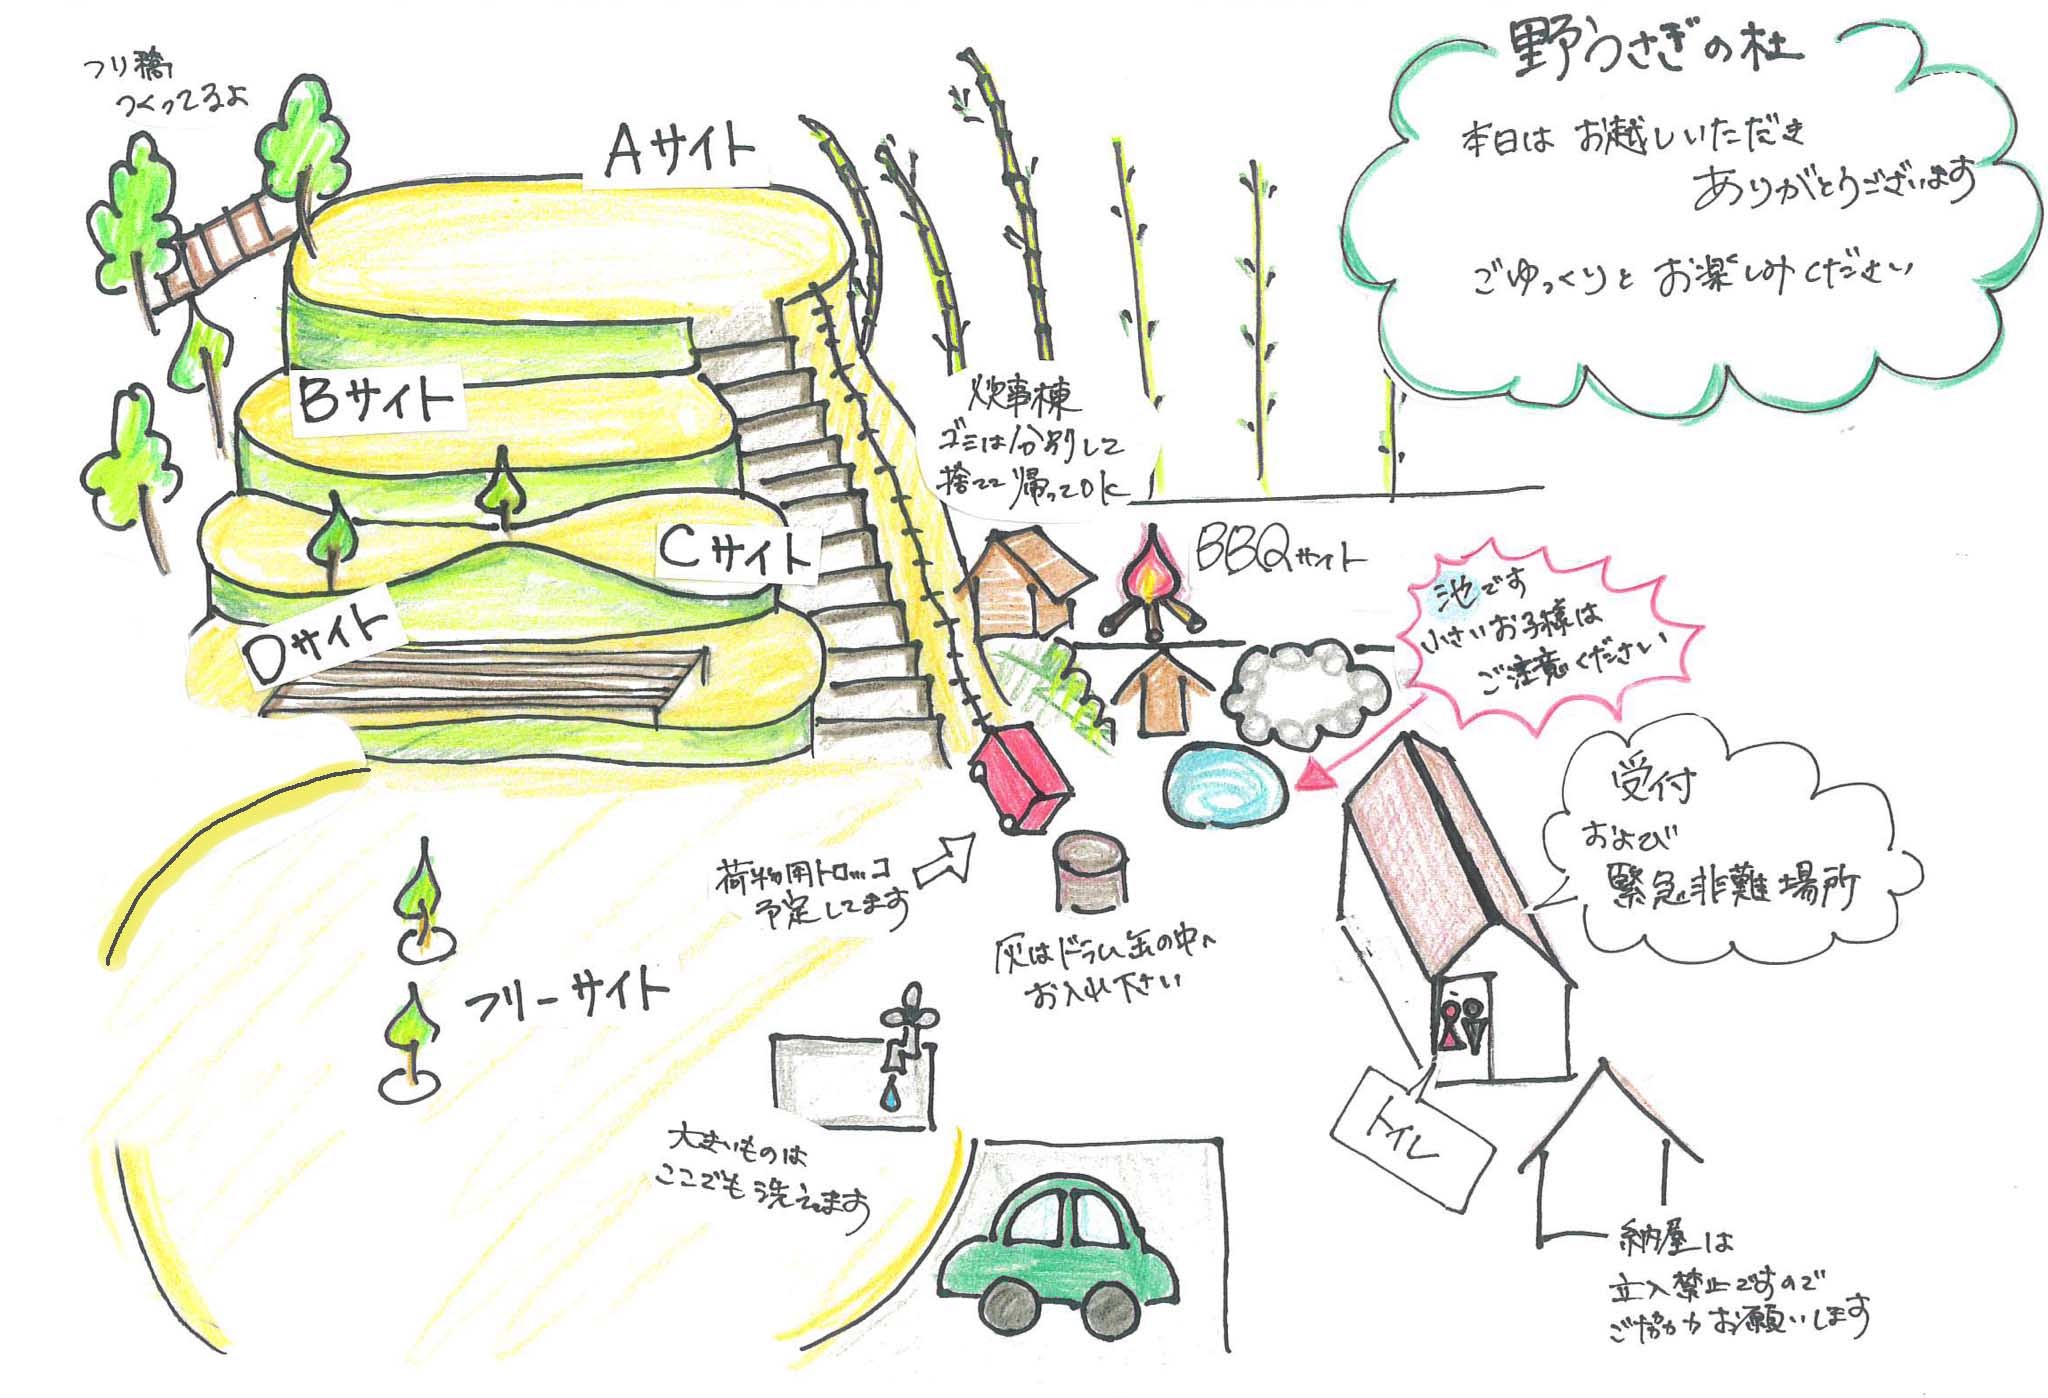 野うさぎの杜
本日は お越しいただき
ありがとうございます
ごゆっくりと お楽しみください
フリ橋
つくってるよ
Aサイト
Bサイト
Cサイト
Dサイト
炊事棟
ゴミは分別して
捨てて帰ってOK
BBQサイト
池です
小さいお子様は
ご注意ください
受付
および
緊急非難場所
荷物用トロッコ
予定してます
灰はドラム缶の中へ
お入れ下さい
フリーサイト
大きいものは
ここでも洗えます
トイレ
納屋は
立入禁止ですので
ご協力お願いします